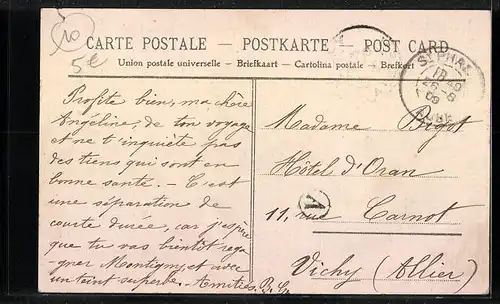 10
5€
CARTE POSTALE — POSTKARTE — POST CARD
Union postale universelle — Briefkaart — Cartolina postale — Brefkort
26-8
09
AUBE
Profite bien, ma chère
Angéline, de ton voyage
et ne t'inquiète pas
des tiens qui sont en
bonne santé. — C'est
une séparation de
courte durée, car j'espère
que tu vas bientôt rega-
gner Montigny, et avec
un teint superbe. Amitiés,
Madame Bigot
Hôtel d'Oran
11, rue Carnot
A
Vichy (Allier)